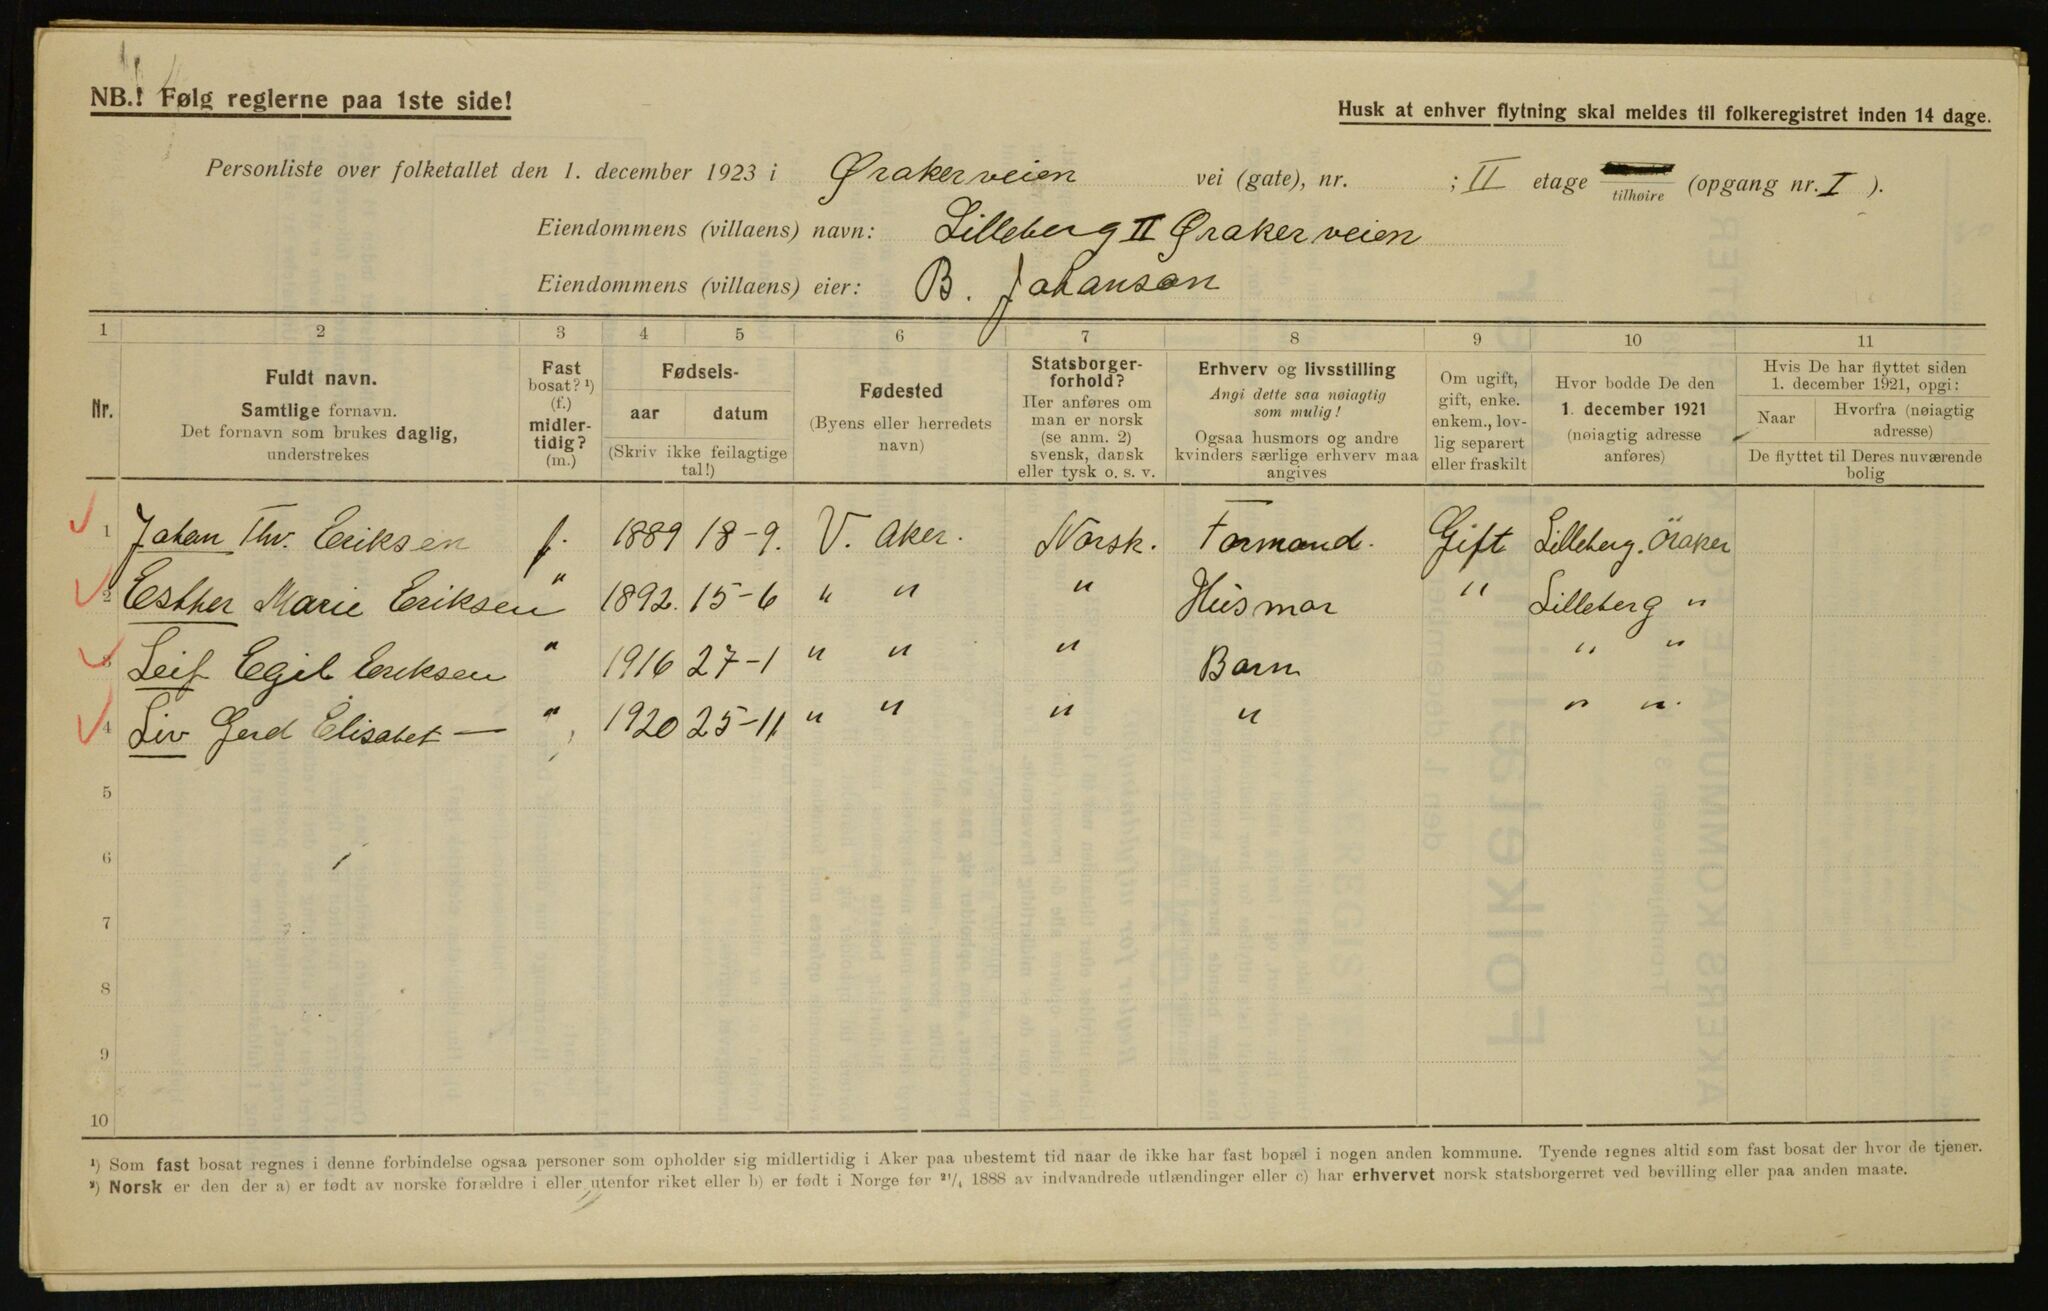 NB.! Følg reglerne paa 1ste side!
Husk at enhver flytning skal meldes til folkeregistret inden 14 dage.
Personliste over folketallet den 1. december 1923 i Ørakerveien vei (gate), nr. ; II etage tilhøire (opgang nr. I ).
Eiendommens (villaens) navn: Lilleberg II Ørakerveien
Eiendommens (villaens) eier: B. Johanson
1 2 3 4 5 6 7 8 9 10 11
Nr.
Fuldt navn.
Samtlige fornavn.
Det fornavn som brukes daglig,
understrekes
Fast
bosat? ¹)
(f.)
midler-
tidig?
(m.)
Fødsels-
aar datum
(Skriv ikke feilagtige
tal!)
Fødested
(Byens eller herredets
navn)
Statsborger-
forhold?
Her anføres om
man er norsk
(se anm. 2)
svensk, dansk
eller tysk o. s. v.
Erhverv og livsstilling
Angi dette saa nøiagtig
som mulig!
Ogsaa husmors og andre
kvinders særlige erhverv maa
angives
Om ugift,
gift, enke.
enkem., lov-
lig separert
eller fraskilt
Hvor bodde De den
1. december 1921
(nøiagtig adresse
anføres)
Hvis De har flyttet siden
1. december 1921, opgi:
Naar Hvorfra (nøiagtig
adresse)
De flyttet til Deres nuværende
bolig
1 Johan Thv. Eriksen f. 1889 18-9. V. Aker. Norsk. Formand. Gift Lilleberg. Öraker
2 Esther Marie Eriksen " 1892. 15-6 " " " Husmor " Lilleberg "
3 Leif Egil Eriksen " 1916 27-1 " " " Barn " "
4 Liv Gerd Elisabet — " 1920 25-11 " " " " " ".
5
6
7
8
9
10
¹) Som fast bosat regnes i denne forbindelse ogsaa personer som opholder sig midlertidig i Aker paa ubestemt tid naar de ikke har fast bopæl i nogen anden kommune. Tyende regnes altid som fast bosat der hvor de tjener.
²) Norsk er den der a) er født av norske forældre i eller utenfor riket eller b) er født i Norge før ²¹/₄ 1888 av indvandrede utlændinger eller c) har erhvervet norsk statsborgerret ved bevilling eller paa anden maate.